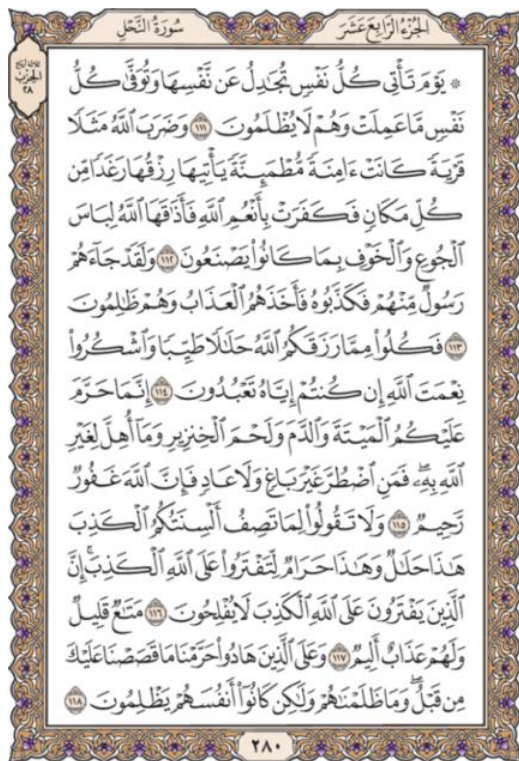 الجزء الرابع عشر
سورة النحل
الحزب
٢٨
۞ يَوْمَ تَأْتِي كُلُّ نَفْسٍ تُجَٰدِلُ عَن نَّفْسِهَا وَتُوَفَّىٰ كُلُّ
نَفْسٍ مَّا عَمِلَتْ وَهُمْ لَا يُظْلَمُونَ ١١١ وَضَرَبَ ٱللَّهُ مَثَلًا
قَرْيَةً كَانَتْ ءَامِنَةً مُّطْمَئِنَّةً يَأْتِيهَا رِزْقُهَا رَغَدًا مِّن
كُلِّ مَكَانٍ فَكَفَرَتْ بِأَنْعُمِ ٱللَّهِ فَأَذَٰقَهَا ٱللَّهُ لِبَاسَ
ٱلْجُوعِ وَٱلْخَوْفِ بِمَا كَانُوا۟ يَصْنَعُونَ ١١٢ وَلَقَدْ جَآءَهُمْ
رَسُولٌ مِّنْهُمْ فَكَذَّبُوهُ فَأَخَذَهُمُ ٱلْعَذَابُ وَهُمْ ظَٰلِمُونَ
١١٣ فَكُلُوا۟ مِمَّا رَزَقَكُمُ ٱللَّهُ حَلَٰلًا طَيِّبًا وَٱشْكُرُوا۟
نِعْمَتَ ٱللَّهِ إِن كُنتُمْ إِيَّاهُ تَعْبُدُونَ ١١٤ إِنَّمَا حَرَّمَ
عَلَيْكُمُ ٱلْمَيْتَةَ وَٱلدَّمَ وَلَحْمَ ٱلْخِنزِيرِ وَمَآ أُهِلَّ لِغَيْرِ
ٱللَّهِ بِهِۦ ۖ فَمَنِ ٱضْطُرَّ غَيْرَ بَاغٍ وَلَا عَادٍ فَإِنَّ ٱللَّهَ غَفُورٌ
رَّحِيمٌ ١١٥ وَلَا تَقُولُوا۟ لِمَا تَصِفُ أَلْسِنَتُكُمُ ٱلْكَذِبَ
هَٰذَا حَلَٰلٌ وَهَٰذَا حَرَامٌ لِّتَفْتَرُوا۟ عَلَى ٱللَّهِ ٱلْكَذِبَ ۚ إِنَّ
ٱلَّذِينَ يَفْتَرُونَ عَلَى ٱللَّهِ ٱلْكَذِبَ لَا يُفْلِحُونَ ١١٦ مَتَٰعٌ قَلِيلٌ
وَلَهُمْ عَذَابٌ أَلِيمٌ ١١٧ وَعَلَى ٱلَّذِينَ هَادُوا۟ حَرَّمْنَا مَا قَصَصْنَا عَلَيْكَ
مِن قَبْلُ ۖ وَمَا ظَلَمْنَٰهُمْ وَلَٰكِن كَانُوٓا۟ أَنفُسَهُمْ يَظْلِمُونَ ١١٨
٢٨٠